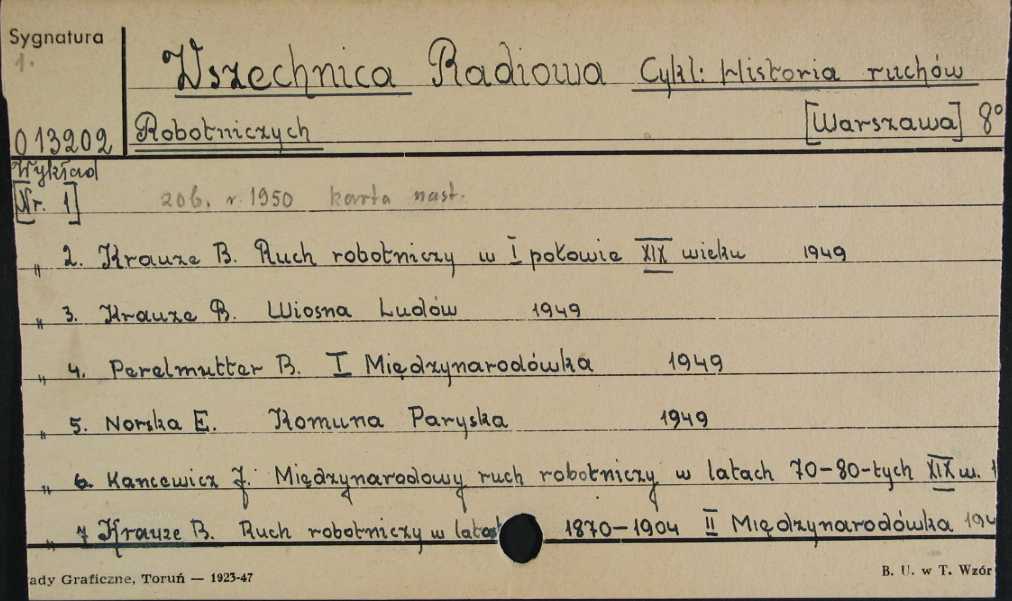 Sygnatura
1.
Wszechnica Radiowa Cykl: Historia ruchów
013202 Robotniczych [Warszawa] 8°
Wykład
[Nr. 1] zob. r. 1950 karta nast.
" 2. Krauze B. Ruch robotniczy w I połowie XIX wieku 1949
" 3. Krauze B. Wiosna Ludów 1949
" 4. Perelmutter B. I Międzynarodówka 1949
" 5. Norska E. Komuna Paryska 1949
" 6. Kancewicz J. Międzynarodowy ruch robotniczy w latach 70-80-tych XIX w. 1
" 7 Krauze B. Ruch robotniczy w latach 1870-1904 II Międzynarodówka 194
ady Graficzne, Toruń — 1923-47 B. U. w T. Wzór